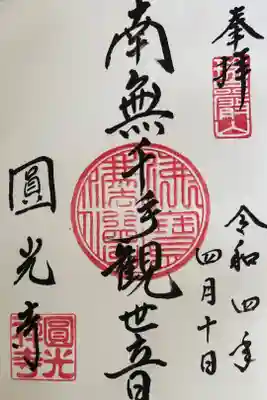 奉拝
令和四年
四月十日
南無千手観世音
圓光寺
圓光寺